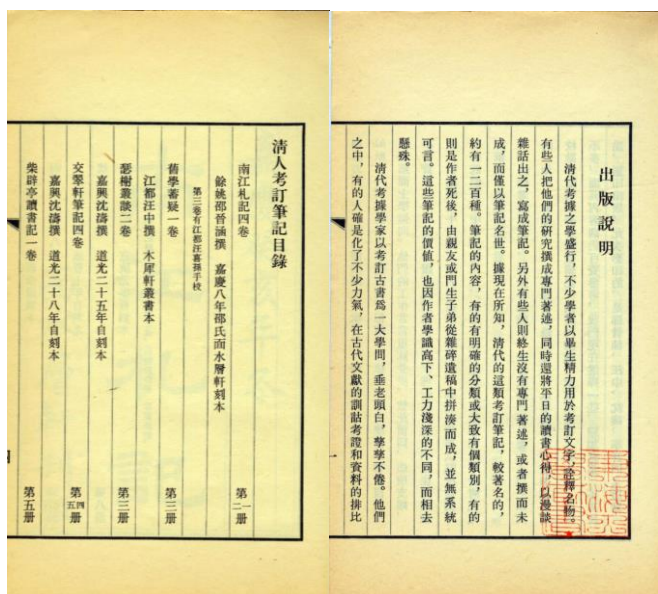 出版說明
清代考據之學盛行，不少學者以畢生精力用於考訂文字，詮釋名物。
有些人把他們的研究撰成專門著述，同時還將平日的讀書心得，以漫談
雜話出之，寫成筆記。另外有些人則終生沒有專門著述，或者撰而未
成，而僅以筆記名世。據現在所知，清代的這類考訂筆記，較著名的，
約有一二百種。筆記的內容，有的有明確的分類或大致有個類別，有的
則是作者死後，由親友或門生子弟從雜碎遺稿中拼湊而成，並無系統
可言。這些筆記的價值，也因作者學識高下、工力淺深的不同，而相去
懸殊。
清代考據學家以考訂古書爲一大學問，垂老頭白，孳孳不倦。他們
之中，有的人確是化了不少力氣，在古代文獻的訓詁考證和資料的排比
清人考訂筆記目錄
南江札記四卷 第一二册
餘姚邵晉涵撰 嘉慶八年邵氏面水層軒刻本
第三卷有江都汪喜孫手校
舊學蓄疑一卷 第三册
江都汪中撰 木犀軒叢書本
瑟榭叢談二卷 第三册
嘉興沈濤撰 道光二十五年自刻本
交翠軒筆記四卷 第四五册
嘉興沈濤撰 道光二十八年自刻本
柴辟亭讀書記一卷 第五册